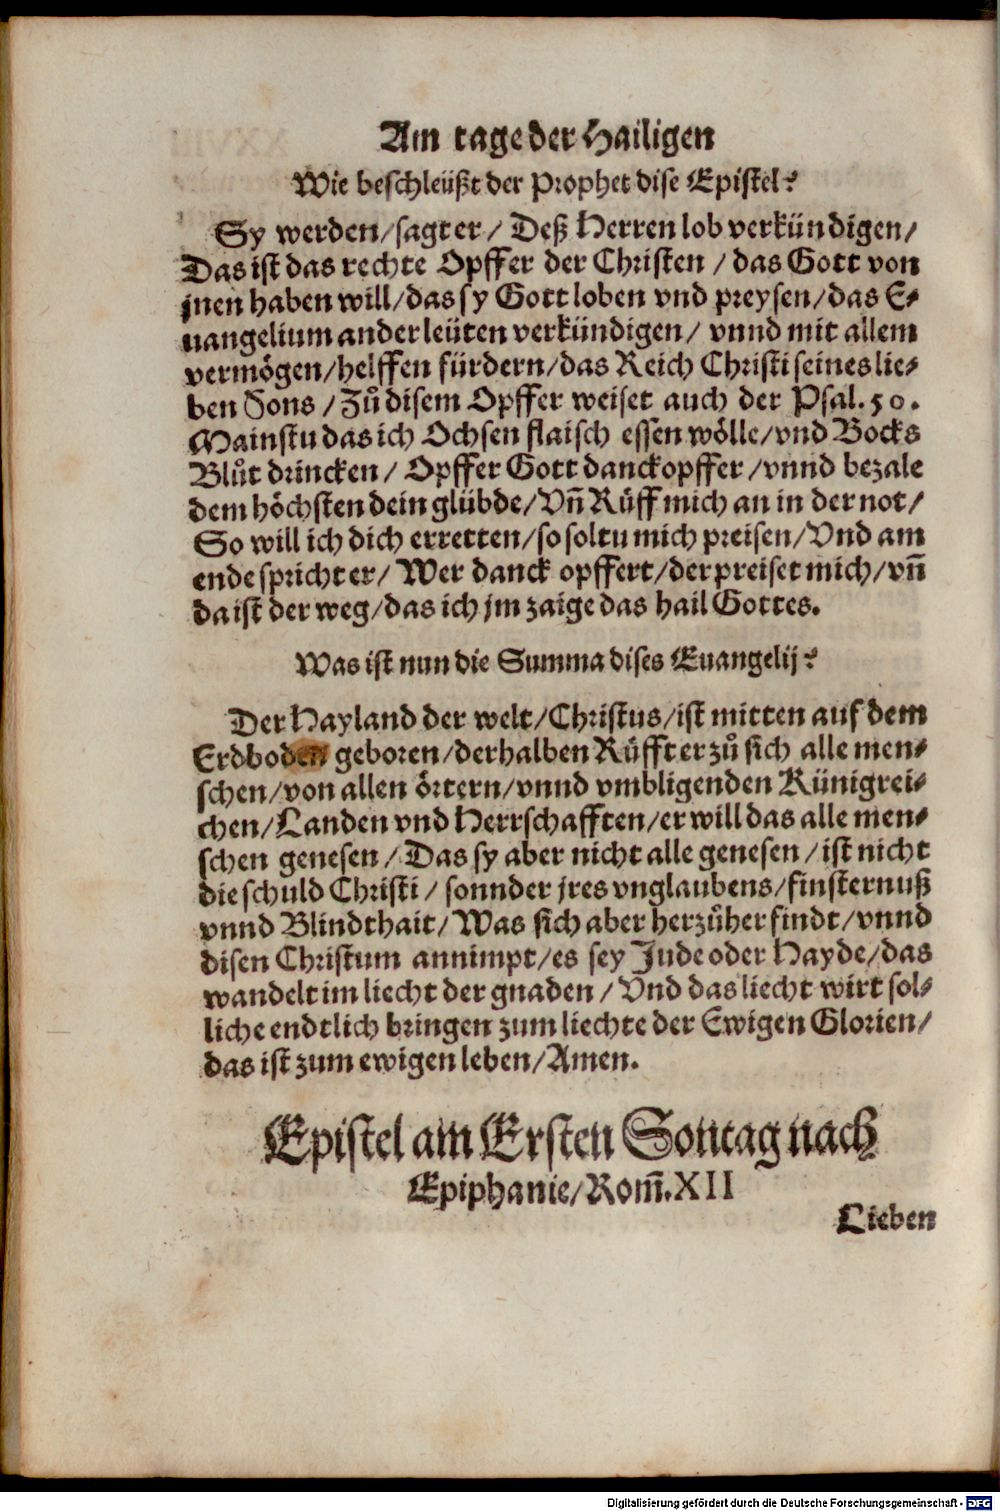 Am tage der Hailigen
Wie beschleüßt der Prophet dise Epistel?
Sy werden/sagt er/ Deß Herren lob verkündigen/
Das ist das rechte Opffer der Christen / das Gott von
jnen haben will/das sy Gott loben vnd preysen/das E-
uangelium ander leüten verkündigen/ vnnd mit allem
vermögen/helffen fürdern/das Reich Christi seines lie-
ben Sons / Zů disem Opffer weiset auch der Psal. 50.
Mainstu das ich Ochsen flaisch essen wölle/vnd Bocks
Blůt drincken/ Opffer Gott danckopffer/vnnd bezale
dem höchsten dein glübde/Vñ Růff mich an in der not/
So will ich dich erretten/so soltu mich preisen/Vnd am
ende spricht er/ Wer danck opffert/der preiset mich/vñ
da ist der weg/das ich jm zaige das hail Gottes.
Was ist nun die Summa dises Euangelij?
Der Hayland der welt/Christus/ist mitten auf dem
Erdboden geboren/derhalben Růfft er zů sich alle men-
schen/von allen örtern/vnnd vmbligenden Künigrei-
chen/Landen vnd Herrschafften/er will das alle men-
schen genesen/ Das sy aber nicht alle genesen/ist nicht
die schuld Christi/ sonnder jres vnglaubens/finsternuß
vnnd Blindthait/ Was sich aber herzůher findt/vnnd
disen Christum annimpt/es sey Jude oder Hayde/das
wandelt im liecht der gnaden / Vnd das liecht wirt sol-
liche endtlich bringen zum liechte der Ewigen Glorien/
das ist zum ewigen leben/Amen.
Epistel am Ersten Sontag nach
Epiphanie/Rom̃.XII
Lieben
Digitalisierung gefördert durch die Deutsche Forschungsgemeinschaft - DFG